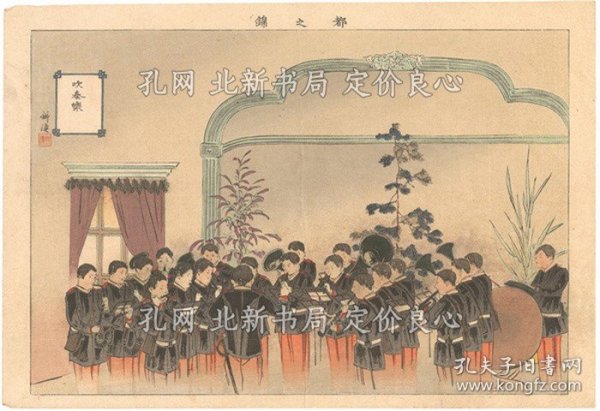 都之錦
吹奏樂
耕漁
孔网 北新书局 定价良心
孔网 北新书局 定价良心
孔夫子旧书网
www.kongfz.com